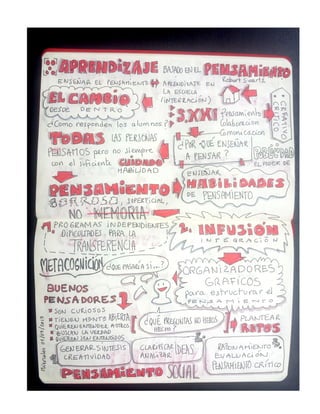 APRENDIZAJE BASADO EN EL PENSAMIENTO
Robert Swartz
ENSEÑAR EL PENSAMIENTO
APRENDIZAJE EN
LA ESCUELA
(INTERRACIÓN)
EL CAMBIO
DESDE DENTRO
¿Como responden los alumnos?
S.XXI
Pensamiento
Colaboración
Comunicacion
CREATIVO
CRITICO
TODAS LAS PERSONAS
PENSAMOS pero no siempre
con el suficiente CUIDADO
HABILIDAD
¿POR QUE ENSEÑAR
A PENSAR?
EL PODER DE
PENSAMIENTO
SUPERFICIAL,
NO MEMORIA
ENSEÑAR
HABILIDADES
DE PENSAMIENTO
PROGRAMAS INDEPENDIENTES
DIFICULTADES PARA LA
TRANSFERENCIA
2. INFUSIÓN
INTEGRACIÓN
METACOGNICIÓN
¿QUE PASARÍA SI...?
ORGANIZADORES
GRÁFICOS
para estructurar el
PENSAMIENTO
BUENOS
PENSADORES
SON CURIOSOS
TIENEN MENTE ABIERTA
QUIEREN ENTENDER A OTROS
BUSCAN LA VERDAD
QUIEREN SER ENTENDIDOS
¿QUÉ PREGUNTAS NO HEMOS
HECHO?
PLANTEAR
RETOS
GENERAR SINTESIS
CREATIVIDAD
CLARIFICAR IDEAS
ANALIZAR
RAZONAMIENTO
EVALUACIÓN
PENSAMIENTO CRÍTICO
PENSAMIENTO SOCIAL